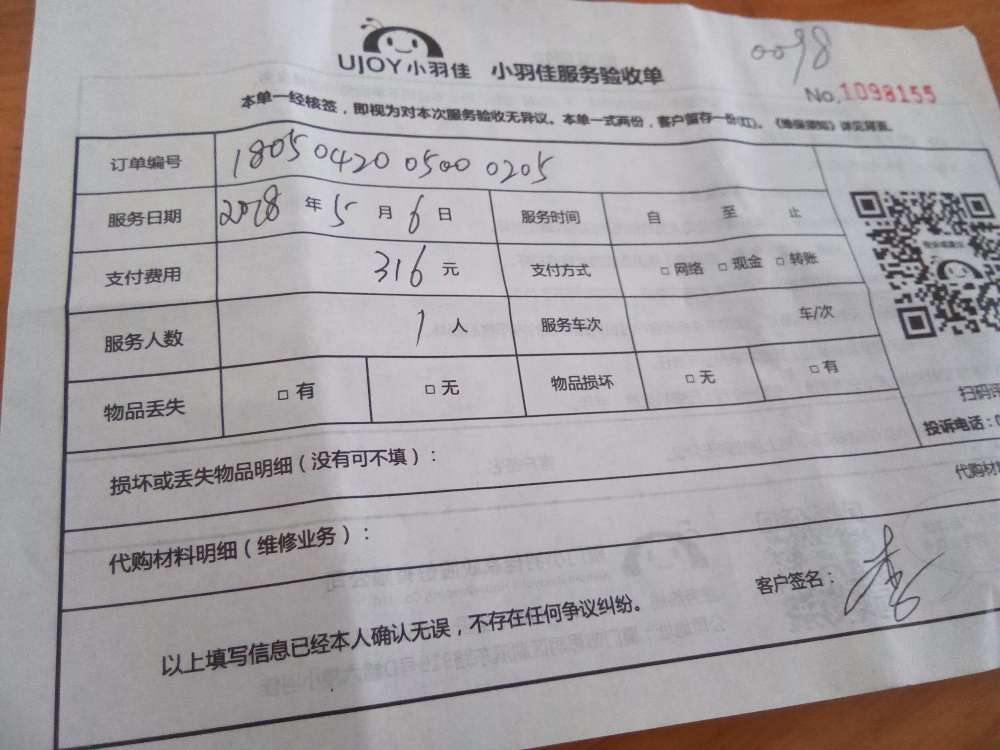 UJOY小羽佳 小羽佳服务验收单
0098
No.1098155
本单一经核签，即视为对本次服务验收无异议。本单一式两份，客户留存一份(红)。《维保须知》详见背面。
订单编号 18050420 0500 0205
服务日期 2018 年 5 月 6 日 服务时间 自 至 止
支付费用 316 元 支付方式 □ 网络 □ 现金 □ 转账
服务人数 1 人 服务车次 车/次
物品丢失 □ 有 □ 无 物品损坏 □ 无 □ 有
扫码评
投诉电话：0
损坏或丢失物品明细（没有可不填）：
代购材料
代购材料明细（维修业务）：
客户签名：
以上填写信息已经本人确认无误，不存在任何争议纠纷。